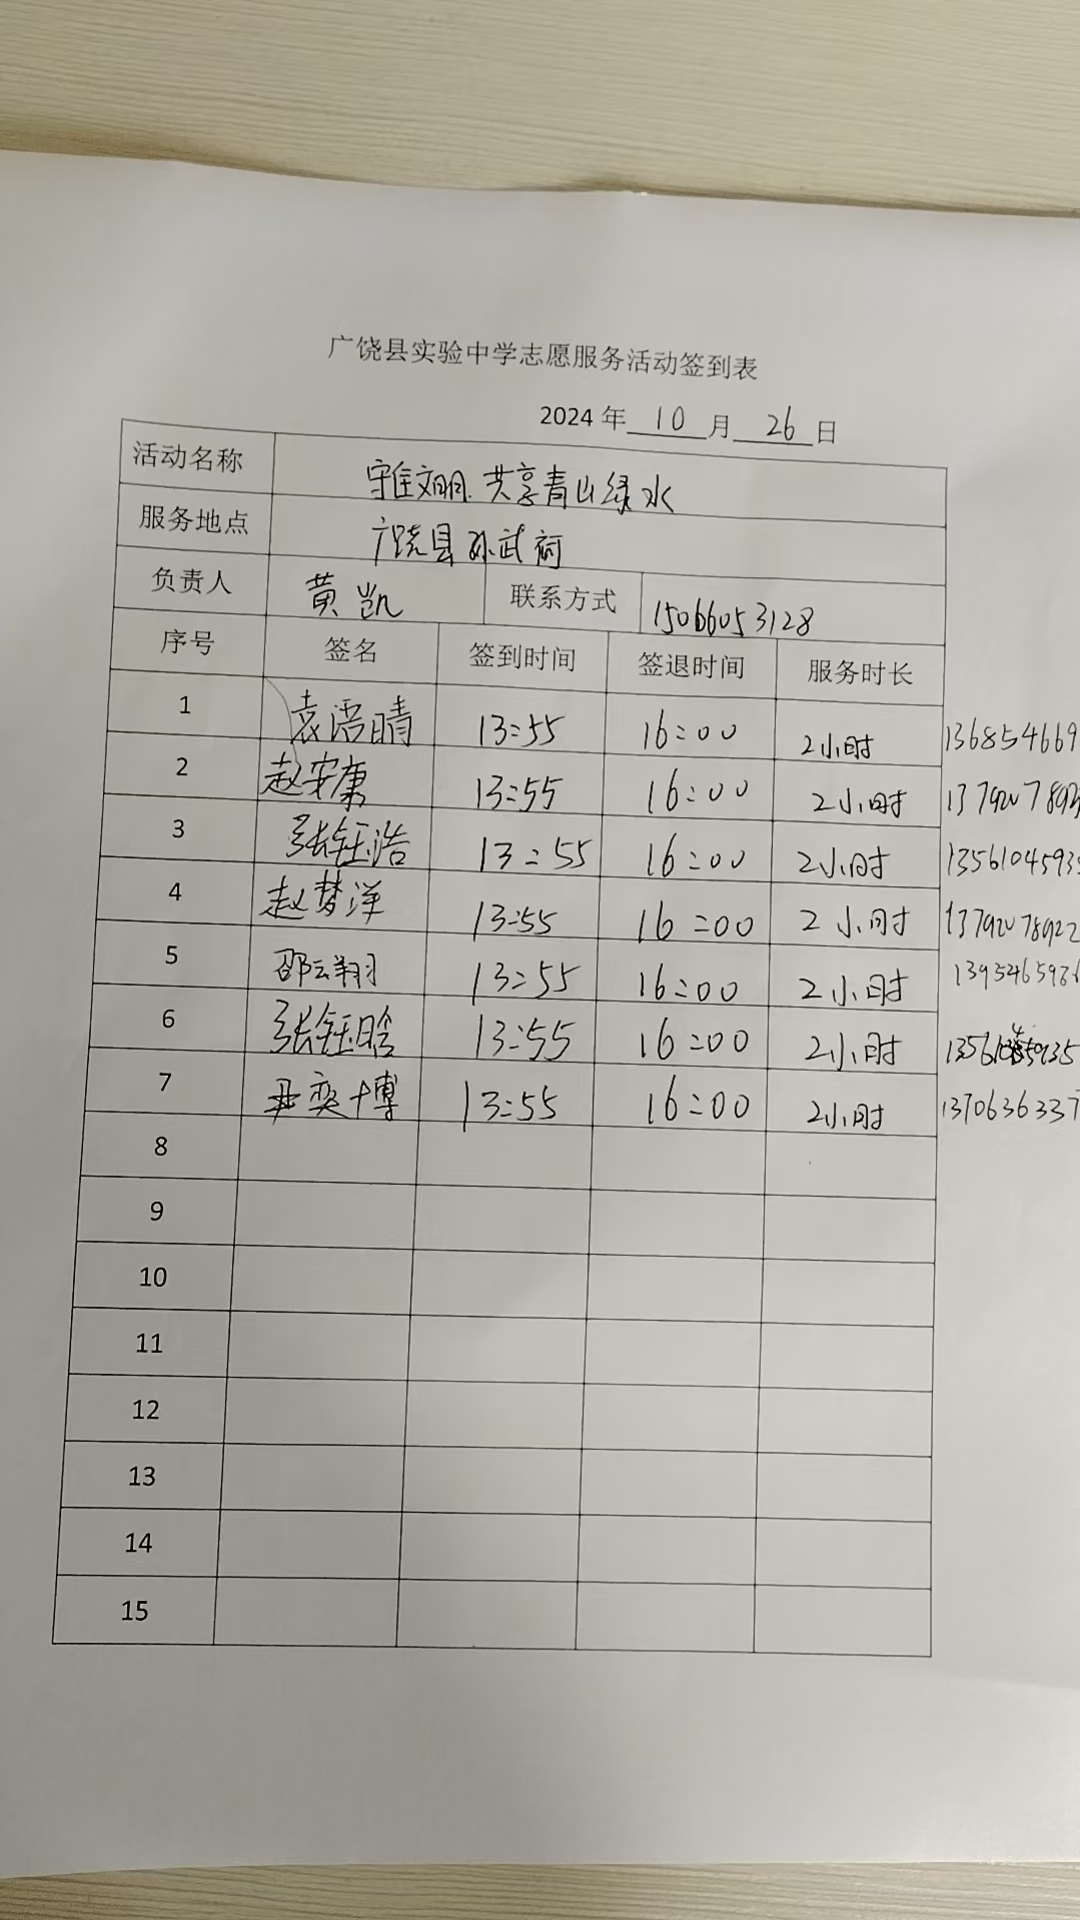 广饶县实验中学志愿服务活动签到表
2024 年 10 月 26 日
活动名称 文明 共享青山绿水
服务地点 广饶县孙武祠
负责人 黄凯 联系方式 15066053128
序号 签名 签到时间 签退时间 服务时长
1 袁语晴 13:55 16:00 2小时 136854669
2 赵安康 13:55 16:00 2小时
3 张钰浩 13:55 16:00 2小时 1356104593
4 赵梦洋 13:55 16:00 2小时
5 邵云翔 13:55 16:00 2小时
6 张钰晗 13:55 16:00 2小时
7 奕博 13:55 16:00 2小时 1370636337
8
9
10
11
12
13
14
15